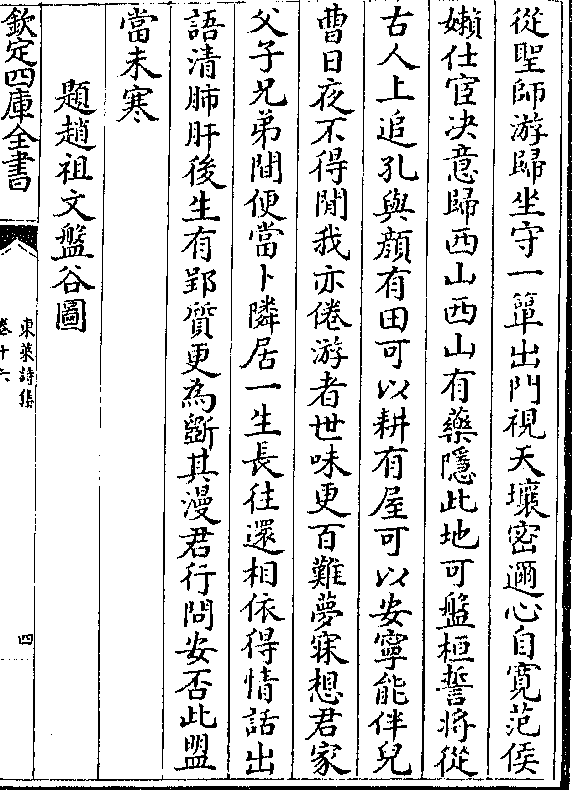 從聖師游歸坐守一簞出門視天壤密邇心自寛范侯
嬾仕宦决意歸西山西山有藥隱此地可盤桓誓將從
古人上追孔與顔有田可以耕有屋可以安寧能伴兒
曹日夜不得閒我亦倦游者世味更百難夢寐想君家
父子兄弟間便當卜隣居一生長往還相依得情話出
語清肺肝後生有郢質更為斵其漫君行問安否此盟
當未寒
題趙祖文盤谷圖
欽定四庫全書
東萊詩集
卷十六
四